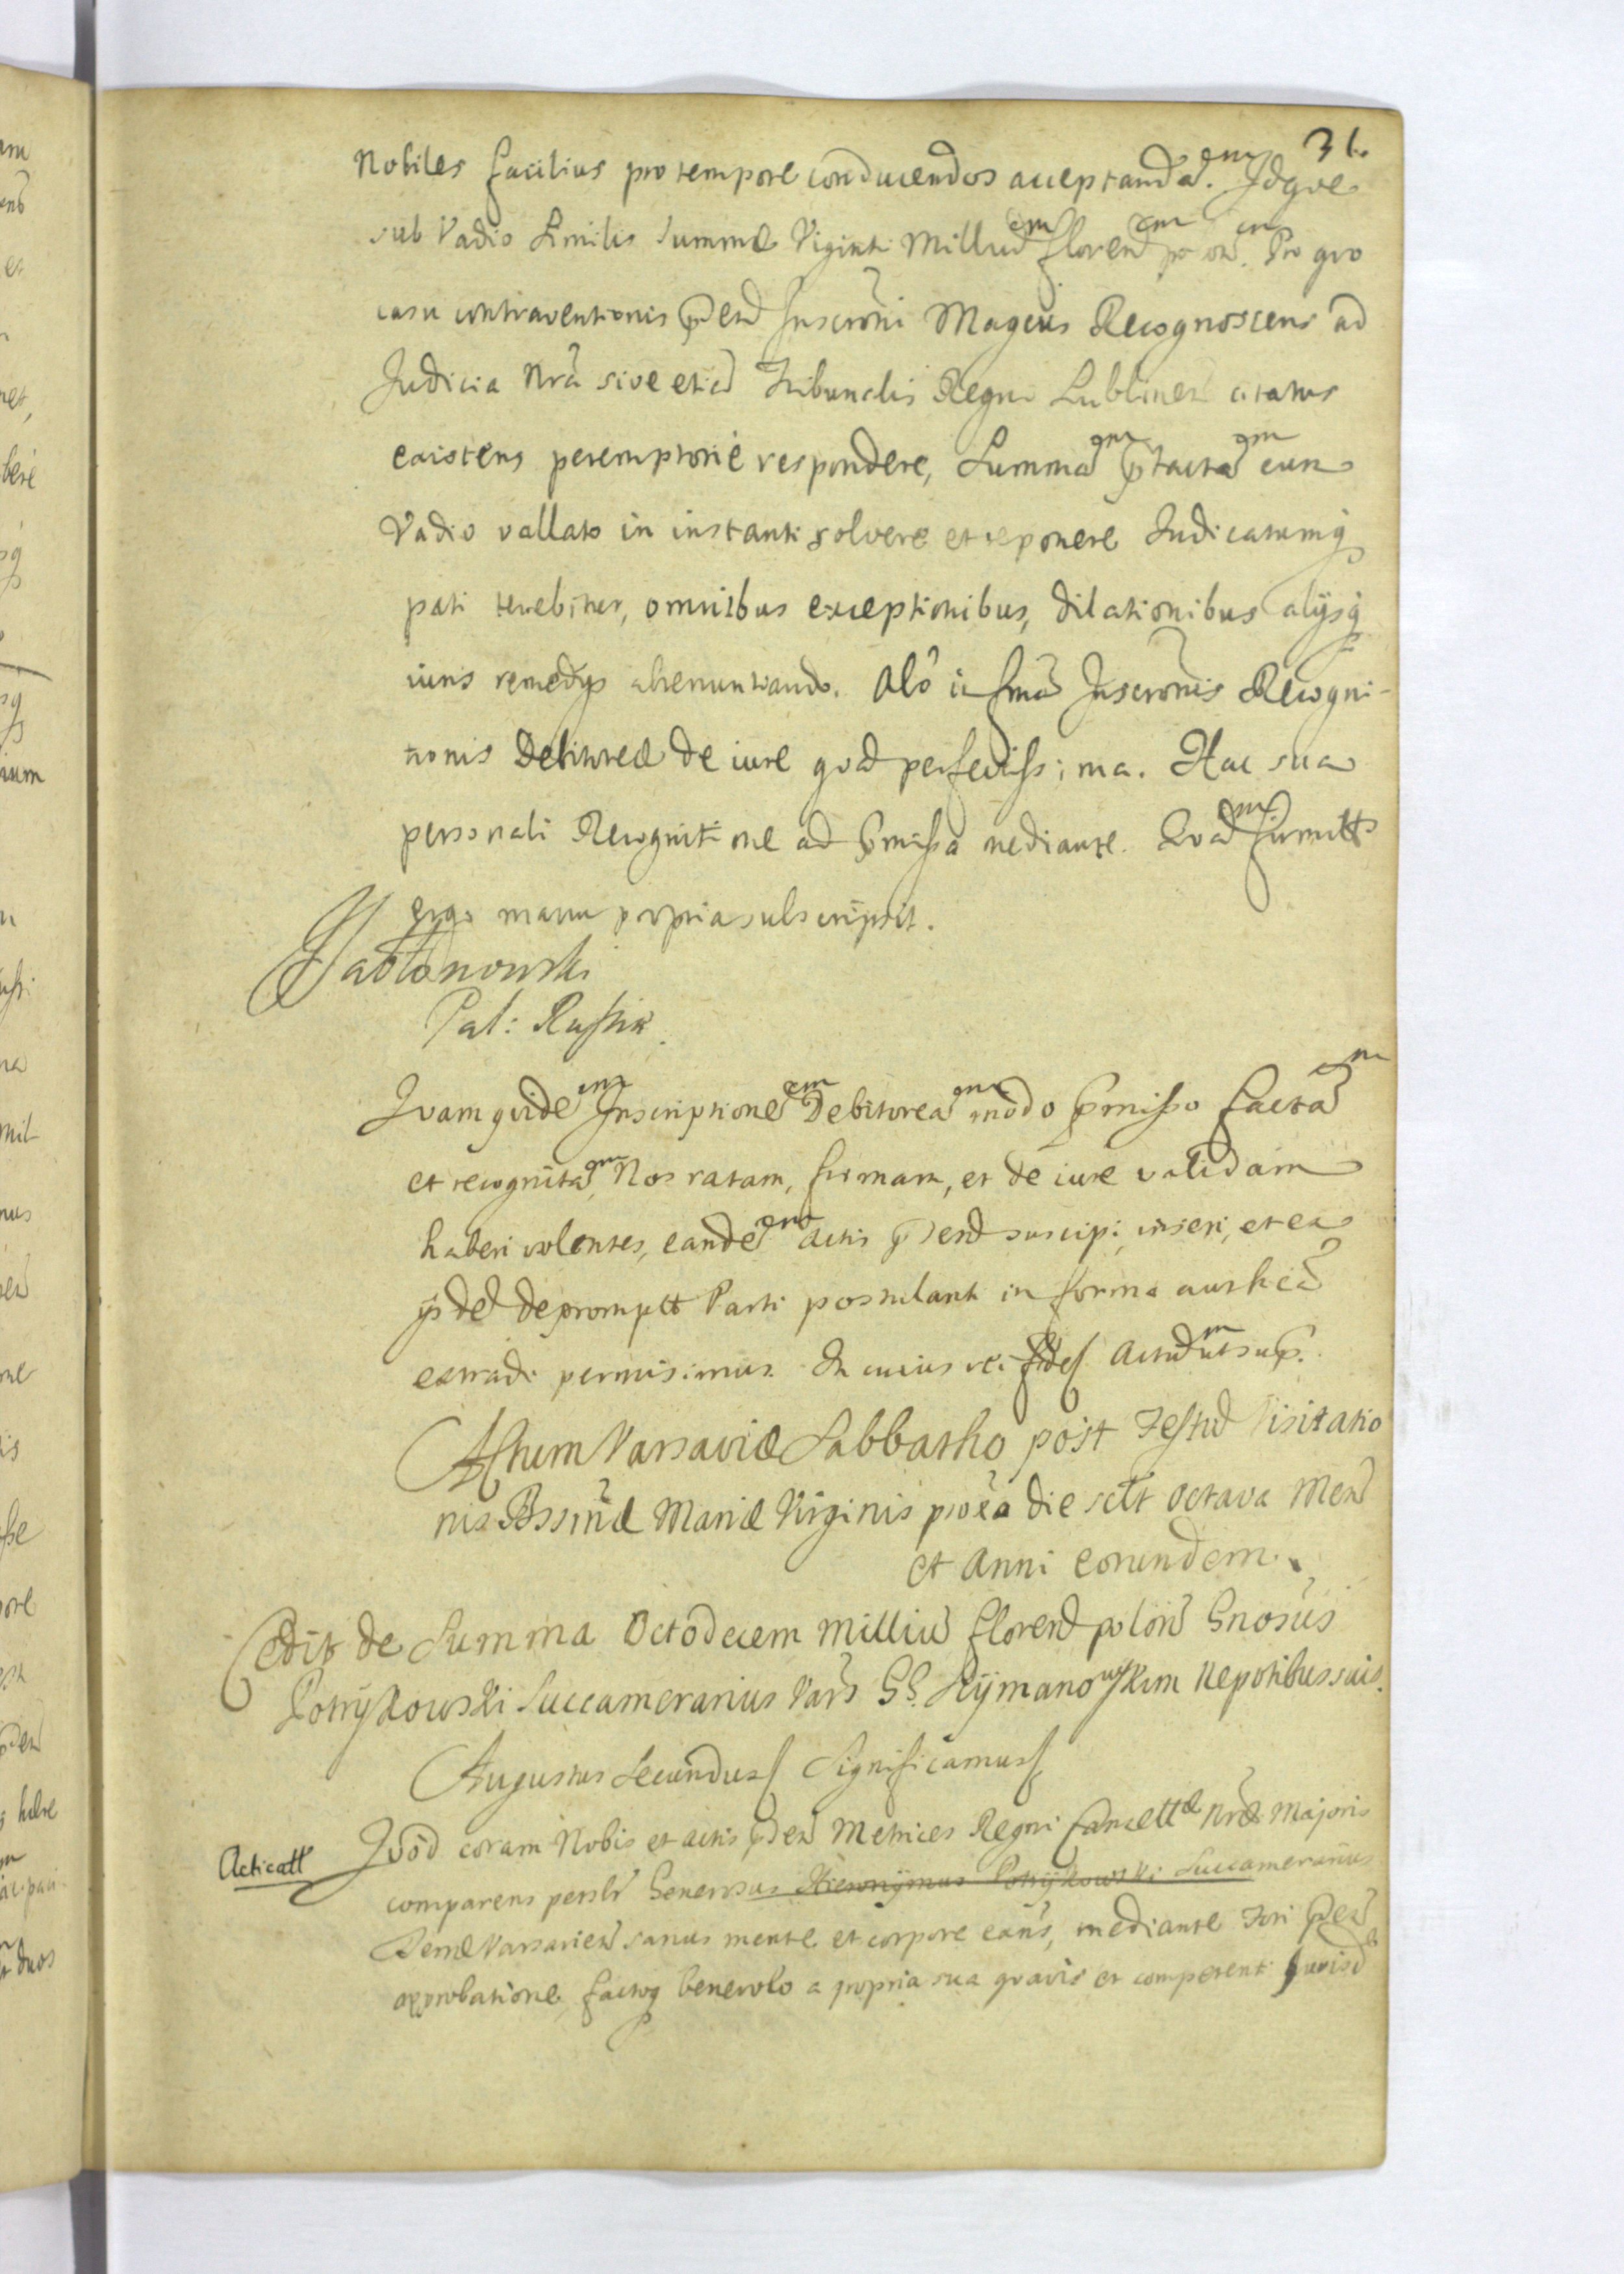 31.
Nobiles facilius pro tempore conducendos acceptandã em. Idque
sub Vadio similis summæ Viginti Milliuem florenem polonem. Pro quo
casu contraventionis pñten Inscrõni Magcus Recognoscens ad
Judicia Nrã sive etiã Tribunalis Regni Lublinen citatus
existens peremptoriè respondere, Summã ptactã cum
Vadio vallato in instanti solvere et reponere Judicatumq
pati tenebitur, omnibus exceptionibus, dilationibus alijsq
iuris remedijs abrenuntiando. Inscrõnis Recogni-
tionis Debitoreæ de iure qvã perfectiss: ma. Hac sua
personali Recognitione ad pmissa mediante. firmitt
ergo manu propria subscripsit.
Jabłonowski
Pal: Russiæ
Qvam quidem Inscriptionem Debitoream modo pmisso factam
et recognitam, Nos ratam, firmam, et de iure validam
haberi volentes, eandem actis pñden suscipi, inseri, et ex
ijsdẽ depromptt Parti postulanti in forma authẽa
extradi permisimus. In cuius rei fidẽ Actum ut sup.
Actum Varsaviæ Sabbatho post Festũ Visitatio
nis Bssmæ Mariæ Virginis proxã die sctt octava Men
et Anni eorundem.
Cedit de Summa Octodecem Milliũ floren polon Gnosus
Potrÿkowski Succamerarius Vars GG. Szÿmanowskim Nepotibus suis.
Augustus Secundus Significamus
Acticatt
Qvod coram Nobis et actis pñden Metrices Regni Cancellæ Nræ Majoris
comparens persltr Generosus Hieronÿmus Potrÿkowski Succamerarius
Terræ Varsavien sanus mente et corpore exñs, mediante Fori pñden
approbatione, factoq benevolo a propria sua qvavis et competenti Jurisd